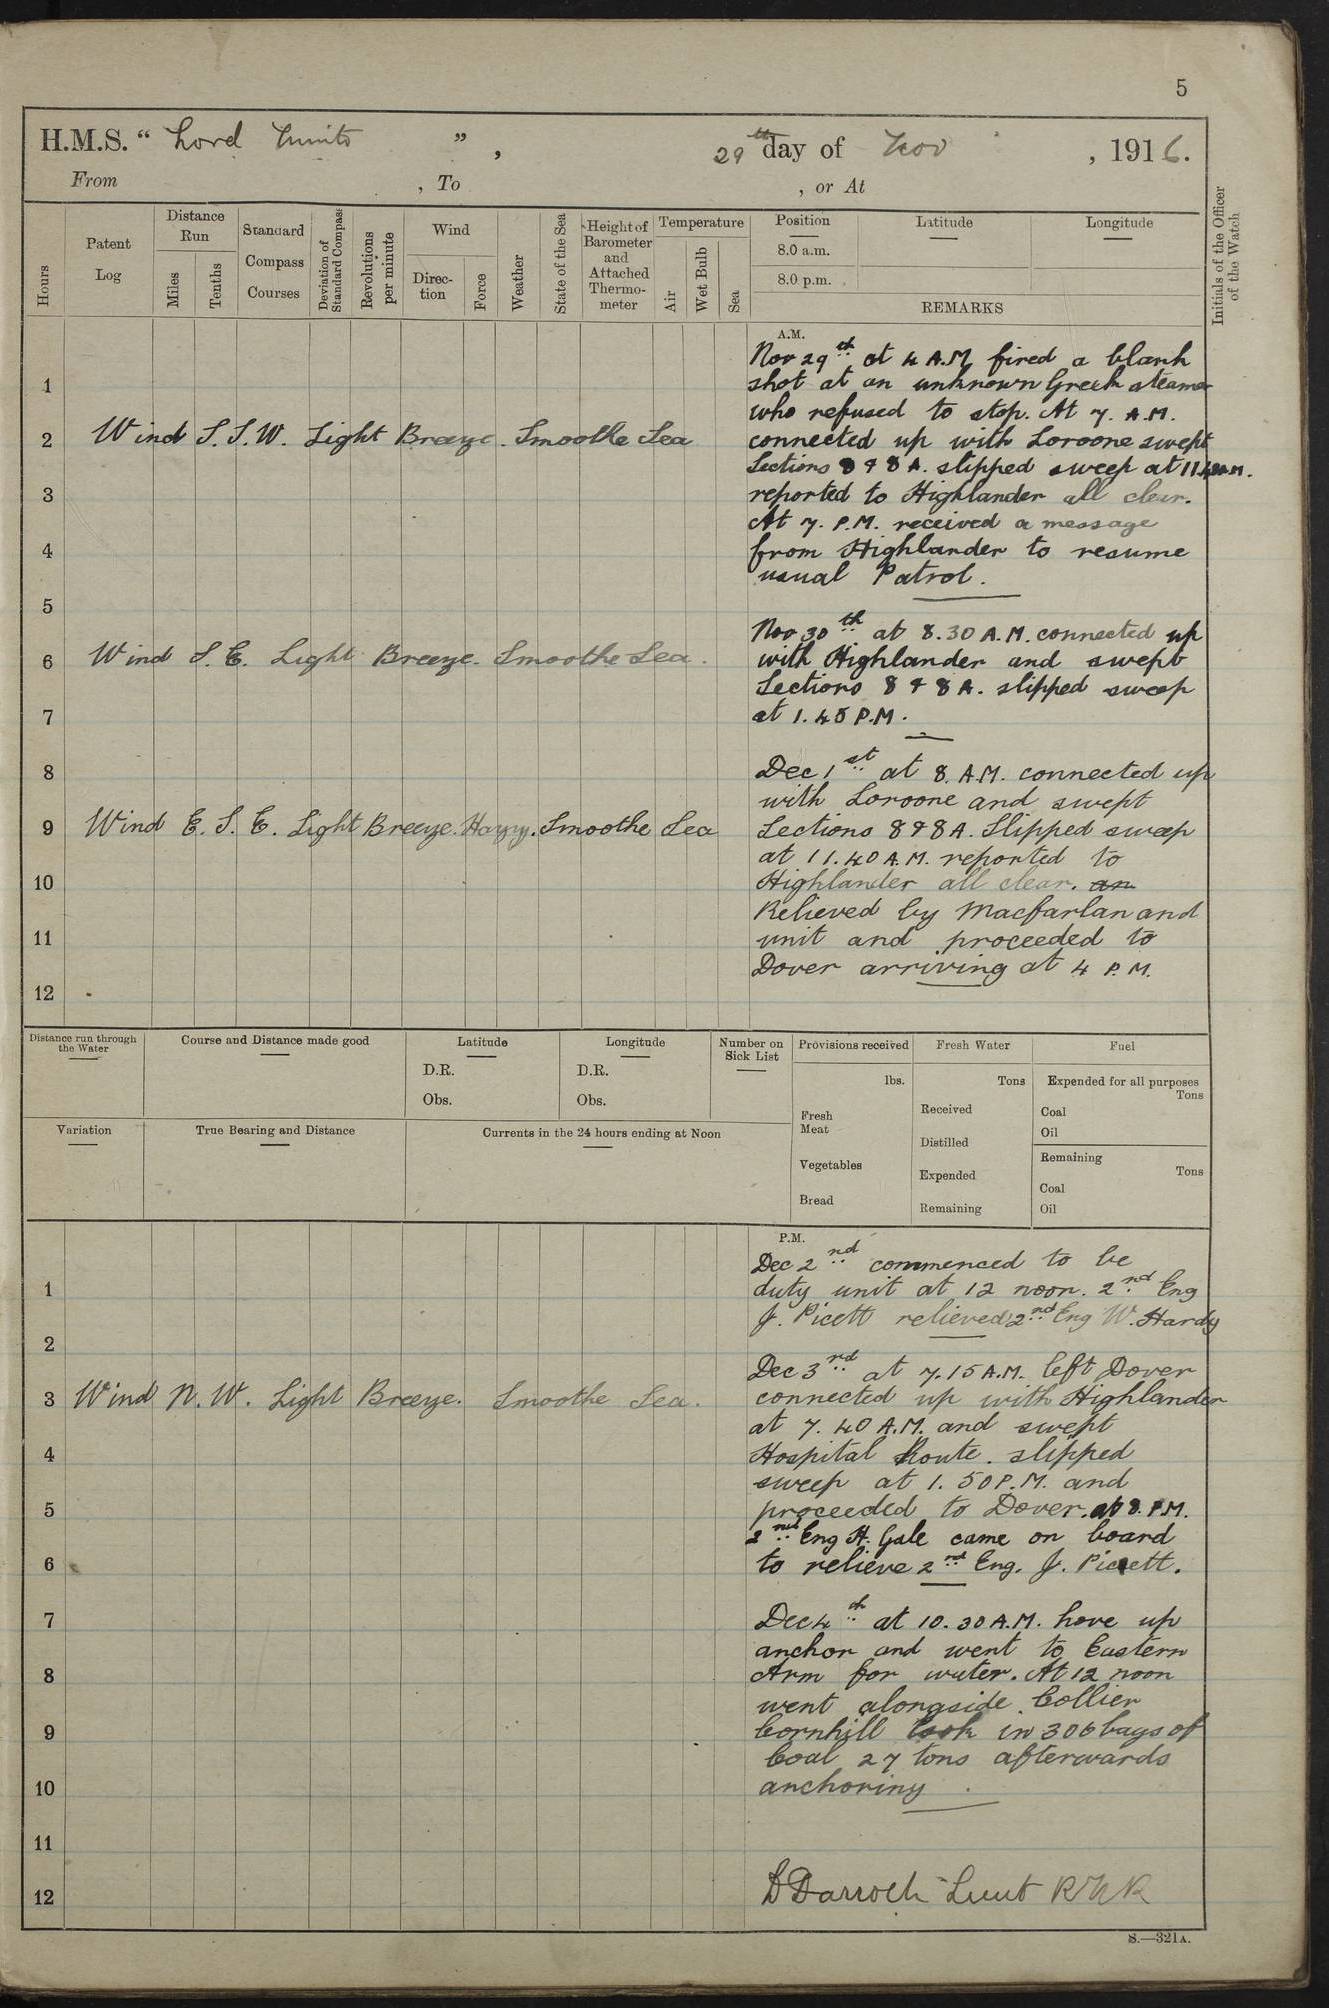 5
H.M.S. " Lord Minto " , 29th day of Nov , 1916.
From , To , or At
Hours
Patent Log
Distance Run
Miles
Tenths
Standard Compass Courses
Deviation of Standard Compass
Revolutions per minute
Wind
Direc-tion
Force
Weather
State of the Sea
Height of Barometer and Attached Thermo-meter
Temperature
Air
Wet Bulb
Sea
Position
Latitude
Longitude
8.0 a.m.
8.0 p.m.
REMARKS
Initials of the Officer of the Watch
A.M.
Nov 29th at 4 A.M. fired a blank
1 shot at an unknown Greek steamer
who refused to stop. At 7. A.M.
2 Wind S.S.W. Light Breeze. Smoothe Sea connected up with Loroone swept
Sections 8 & 8 A. slipped sweep at 11.40 A.M.
3 reported to Highlander all clear.
At 7. P.M. received a message
4 from Highlander to resume
usual Patrol.
5
Nov 30th at 8.30 A.M. connected up
6 Wind S.E. Light Breeze. Smoothe Sea. with Highlander and swept
Sections 8 & 8 A. slipped sweep
7 at 1.45 P.M.
8 Dec 1st at 8. A.M. connected up
with Loroone and swept
9 Wind E.S.E. Light Breeze. Hazy. Smoothe Sea Sections 8 & 8A. Slipped sweep
at 11.40 A.M. reported to
10 Highlander all clear. an
Relieved by Macfarlan and
11 unit and proceeded to
Dover arriving at 4 P.M.
12
Distance run through the Water
Course and Distance made good
Latitude
D.R.
Obs.
Longitude
D.R.
Obs.
Number on Sick List
Provisions received
lbs.
Fresh Meat
Vegetables
Bread
Fresh Water
Tons
Received
Distilled
Expended
Remaining
Fuel
Expended for all purposes
Tons
Coal
Oil
Remaining
Tons
Coal
Oil
Variation
True Bearing and Distance
Currents in the 24 hours ending at Noon
P.M.
Dec 2nd commenced to be
1 duty unit at 12 noon. 2nd Eng
J. Picett relieved 2nd Eng W. Hardy
2
Dec 3rd at 7.15 A.M. left Dover
3 Wind N.W. Light Breeze. Smoothe Sea. connected up with Highlander
at 7.40 A.M. and swept
4 Hospital Route. slipped
sweep at 1.50 P.M. and
5 proceeded to Dover. at 8. P.M.
2nd Eng H. Gale came on board
6 to relieve 2nd Eng. J. Picett.
7 Dec 4th at 10.30 A.M. hove up
anchor and went to Eastern
8 Arm for water. At 12 noon
went alongside Collier
9 Cornhill took in 306 bags of
Coal 27 tons afterwards
10 anchoring.
11
12 D Darroch Lieut RNR
S.—321A.